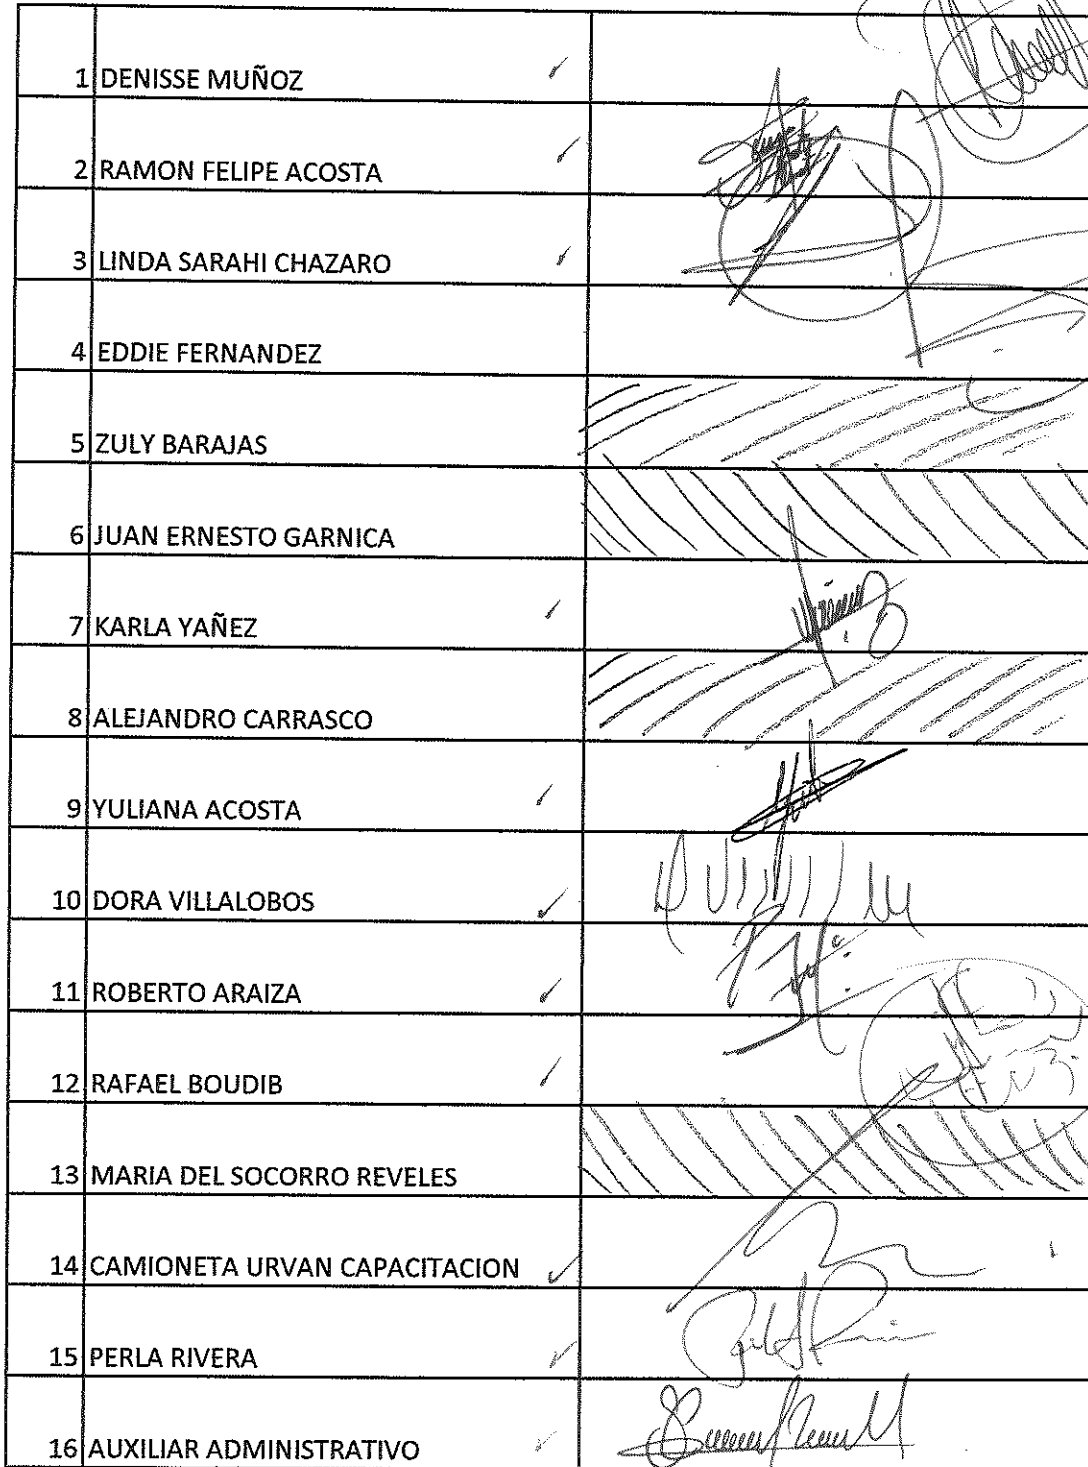 1 DENISSE MUÑOZ
2 RAMON FELIPE ACOSTA
3 LINDA SARAHI CHAZARO
4 EDDIE FERNANDEZ
5 ZULY BARAJAS
6 JUAN ERNESTO GARNICA
7 KARLA YAÑEZ
8 ALEJANDRO CARRASCO
9 YULIANA ACOSTA
10 DORA VILLALOBOS
11 ROBERTO ARAIZA
12 RAFAEL BOUDIB
13 MARIA DEL SOCORRO REVELES
14 CAMIONETA URVAN CAPACITACION
15 PERLA RIVERA
16 AUXILIAR ADMINISTRATIVO